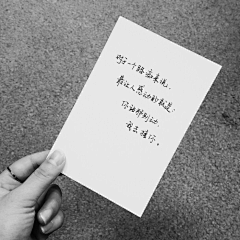 对于一个路痴来说，
最让人感动的就是：
你站那别动，
我去接你。